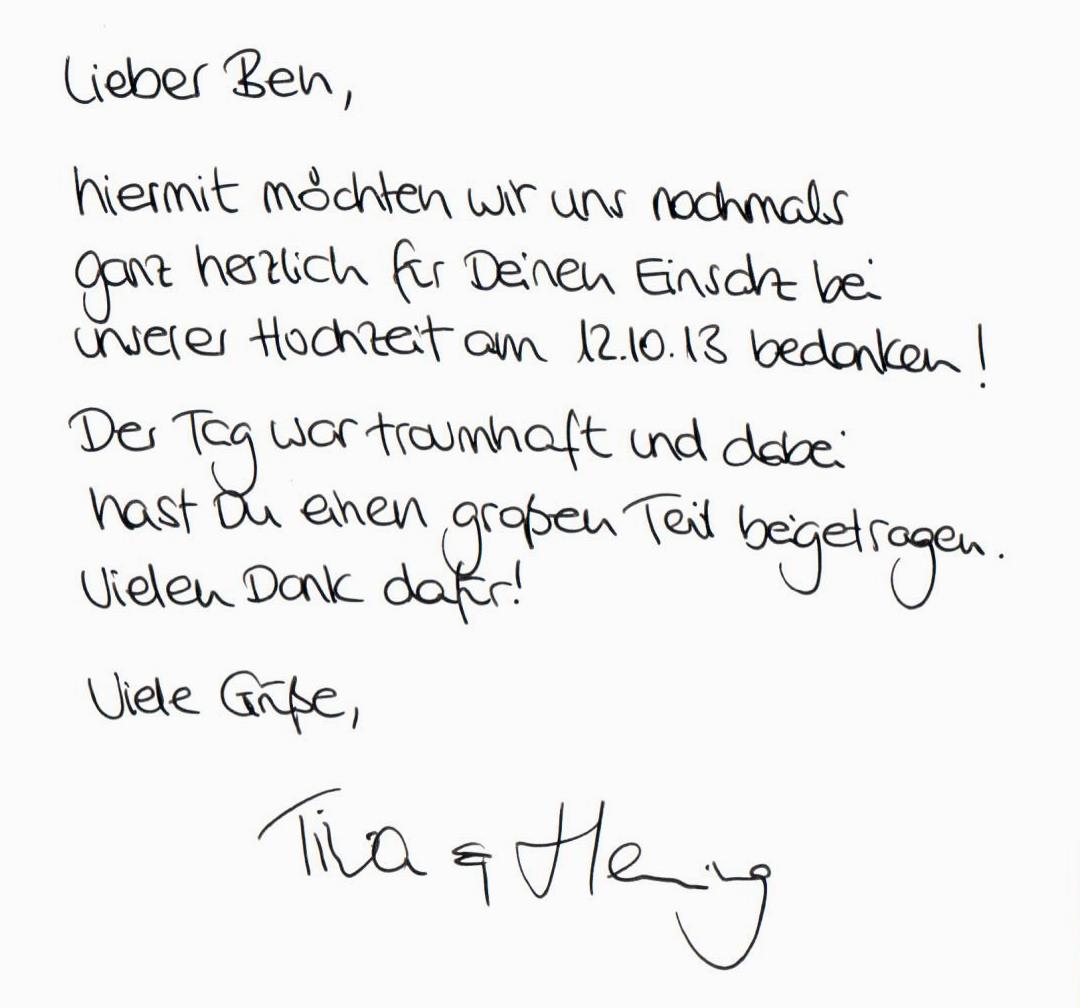 Lieber Ben,
hiermit möchten wir uns nochmals
ganz herzlich für Deinen Einsatz bei
unserer Hochzeit am 12.10.13 bedanken!
Der Tag war traumhaft und dabei
hast Du einen großen Teil beigetragen.
Vielen Dank dafür!
Viele Grüße,
Tina & Henning